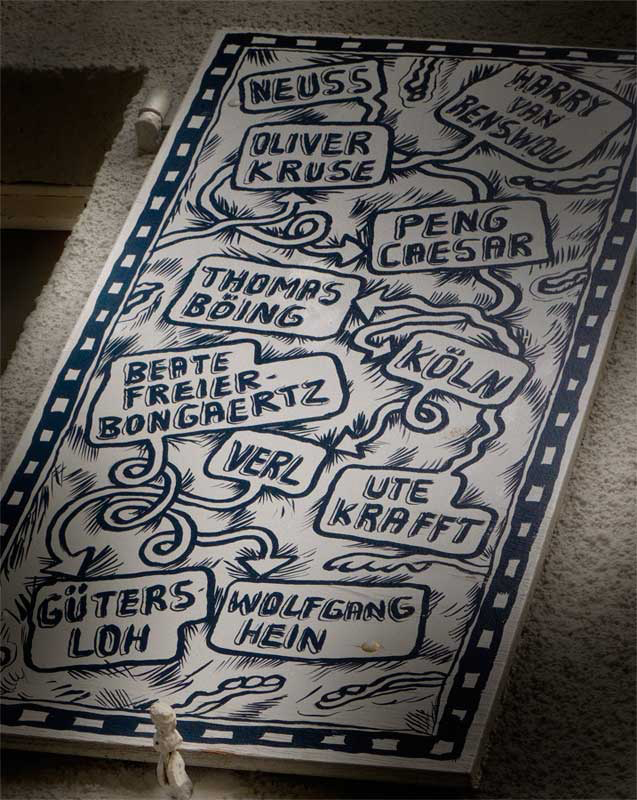 NEUSS
HARRY
VAN
BENSWOU
OLIVER
KRUSE
PENG
CAESAR
THOMAS
BÖING
KÖLN
BEATE
FREIER-
BONGAERTZ
VERL
UTE
KRAFFT
GÜTERS-
LOH
WOLFGANG
HEIN